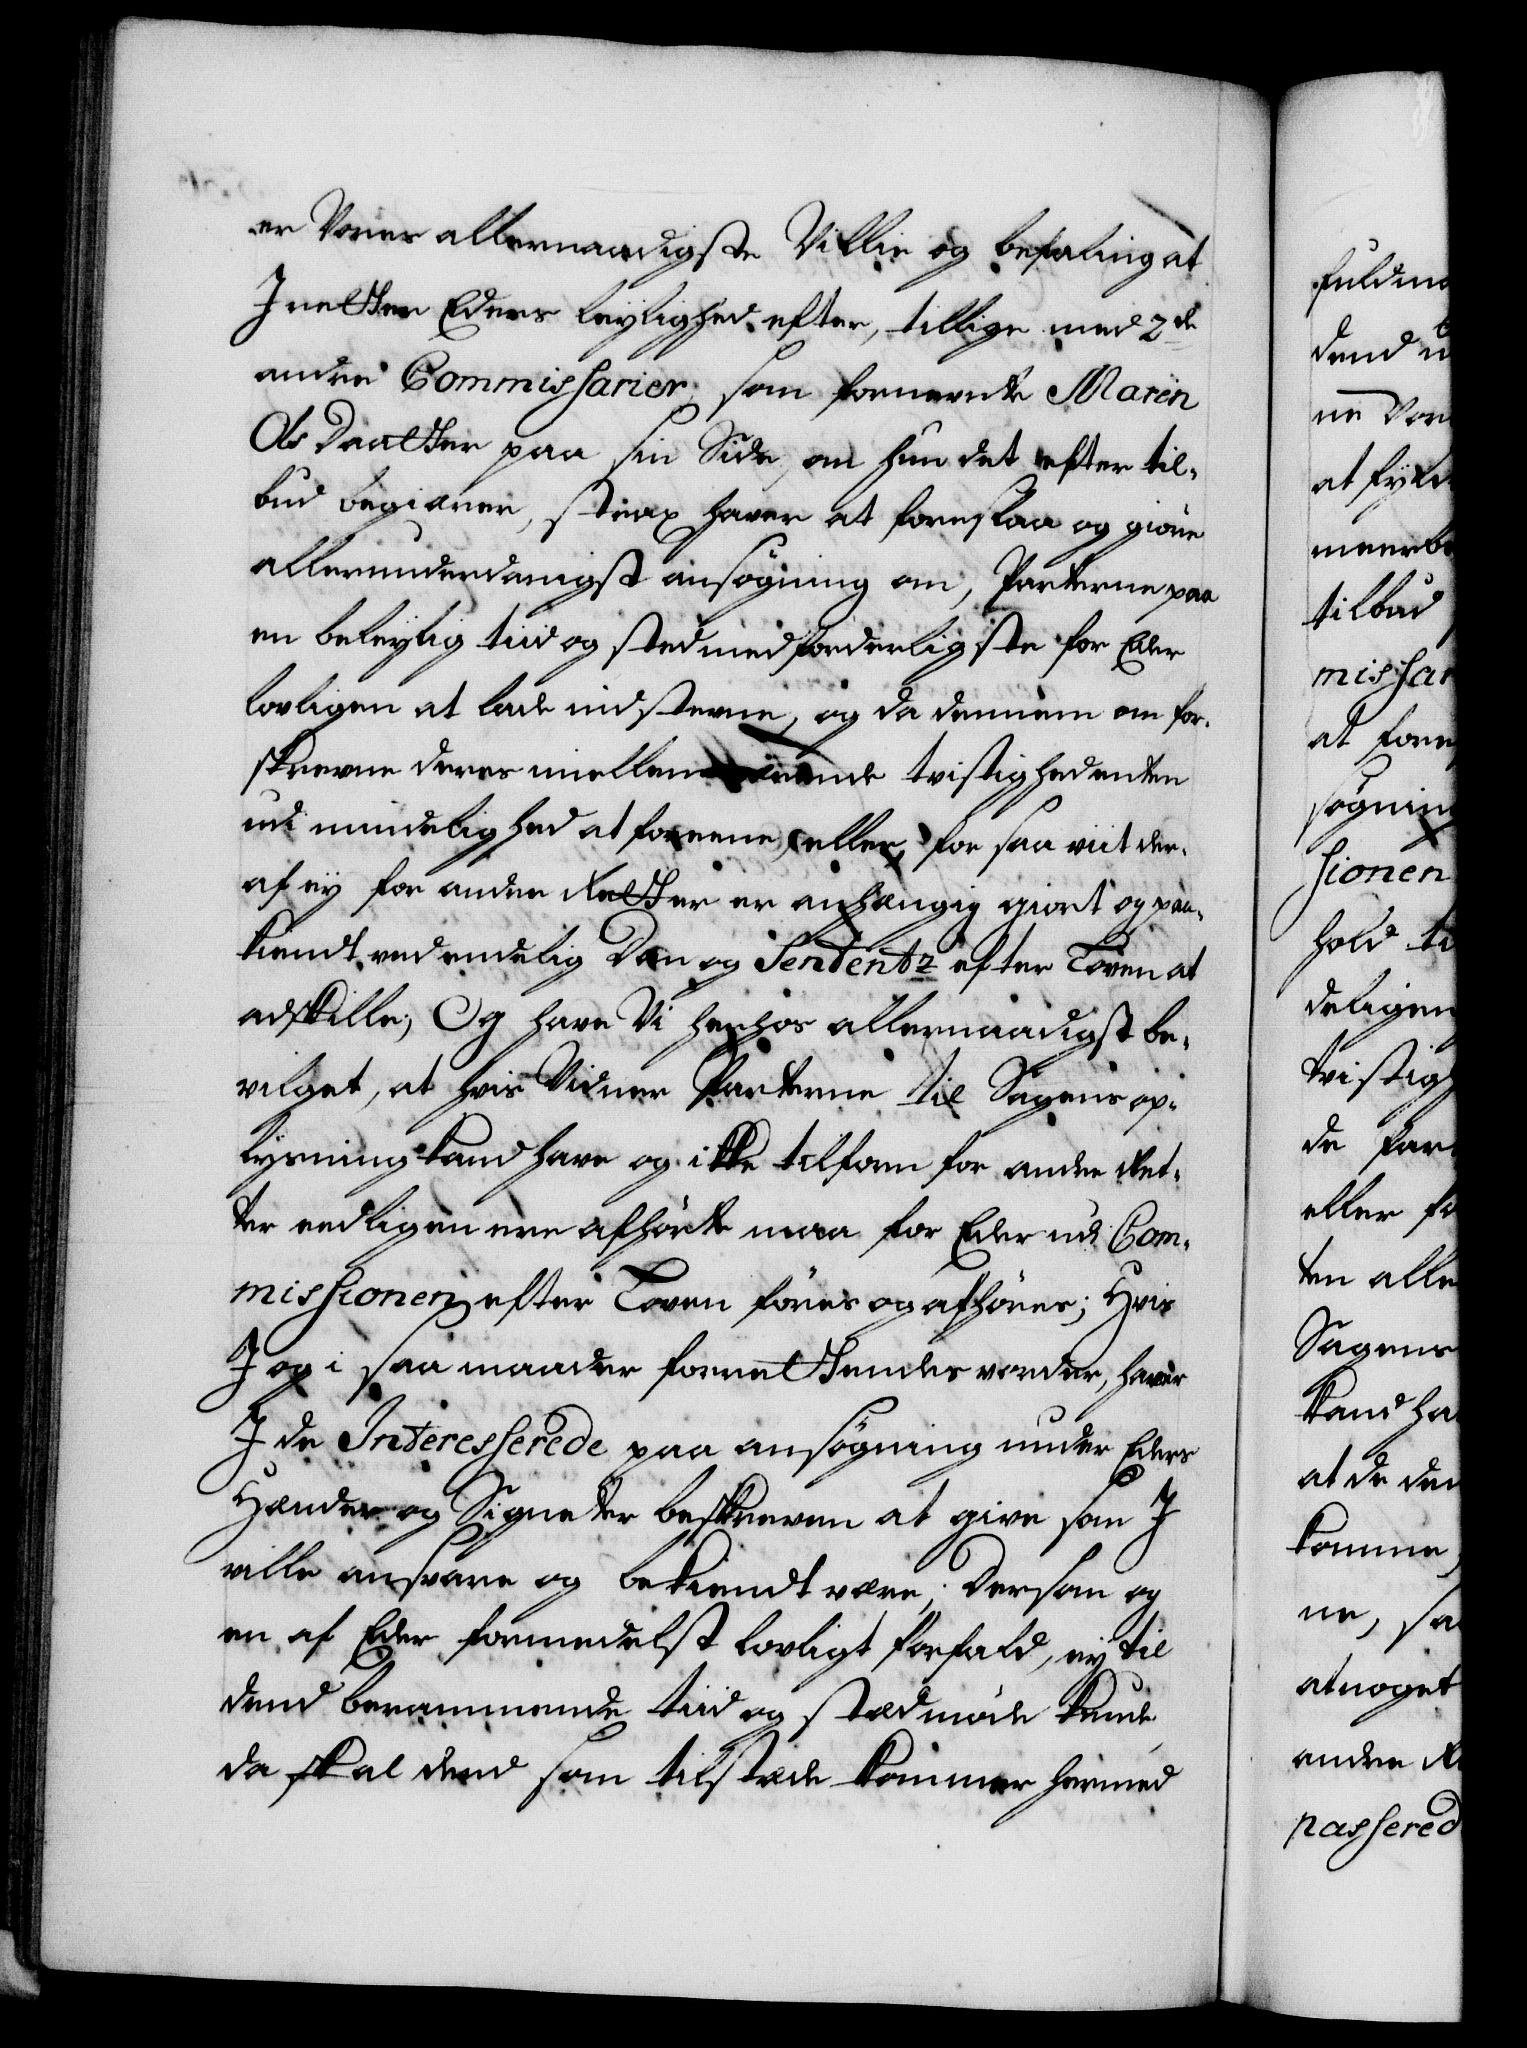 er Vores allernaadigste Villie og befaling at
I retter Eders leylighed efter, tillige med 2de
andre Commissarier, som fornevnte Maren
Ols Daatter paa sin Side, om hun det efter til-
bud begiærer, strax haver at foreslaa og giøre
allerunderdanigst ansøgning om, Parterne paa
en beleylig tiid og sted med forderligste for Eder
lovligen at lade indstevne, og da dennem om for-
skrevne deres imellem værende tvistigheder enten
udi mindelighed at foreene, eller, for saa viit der-
af ey for andre Retter er anhængig giort og paa-
kiendt, ved endelig Dom og Sententz efter Loven at
adskille; Og have Vi herhos allernaadigst be-
vilget, at hvis Vidner Parterne til Sagens op-
lysning kand have og ikke tilforn for andre Ret-
ter eedligen ere afhørte maa for Eder udi Com-
missionen efter Loven føres og afhøres; Hvis
I og i saa maader forrettendes vorder, haver
I de Interesserede paa ansøgning under Eders
Hænder og Signeter beskreven at give som I
ville ansvare og bekiendt være; Dersom og
en af Eder formedelst lovligt forfald, ey til
dend berammende tiid og sted møde kunde
da skal dend som tilstæde kommer hermed
fuldma
dend u
ne Vor
at fyld
meerbe
tilbud
missar
at fore
søgnin
sionen
hold ti
deligen
tvistig
de for
eller fo
ten alle
Sagens
kand ha
at de den
komme
ne, sa
at noget
andre Re
passered